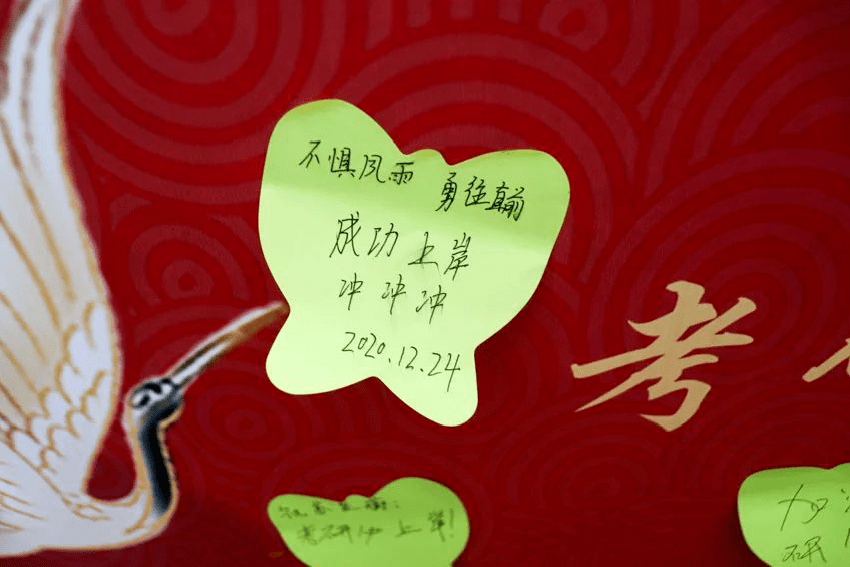 不惧风雨 勇往直前
成功上岸
冲冲冲
2020.12.24
考
考研必上岸!
加
研